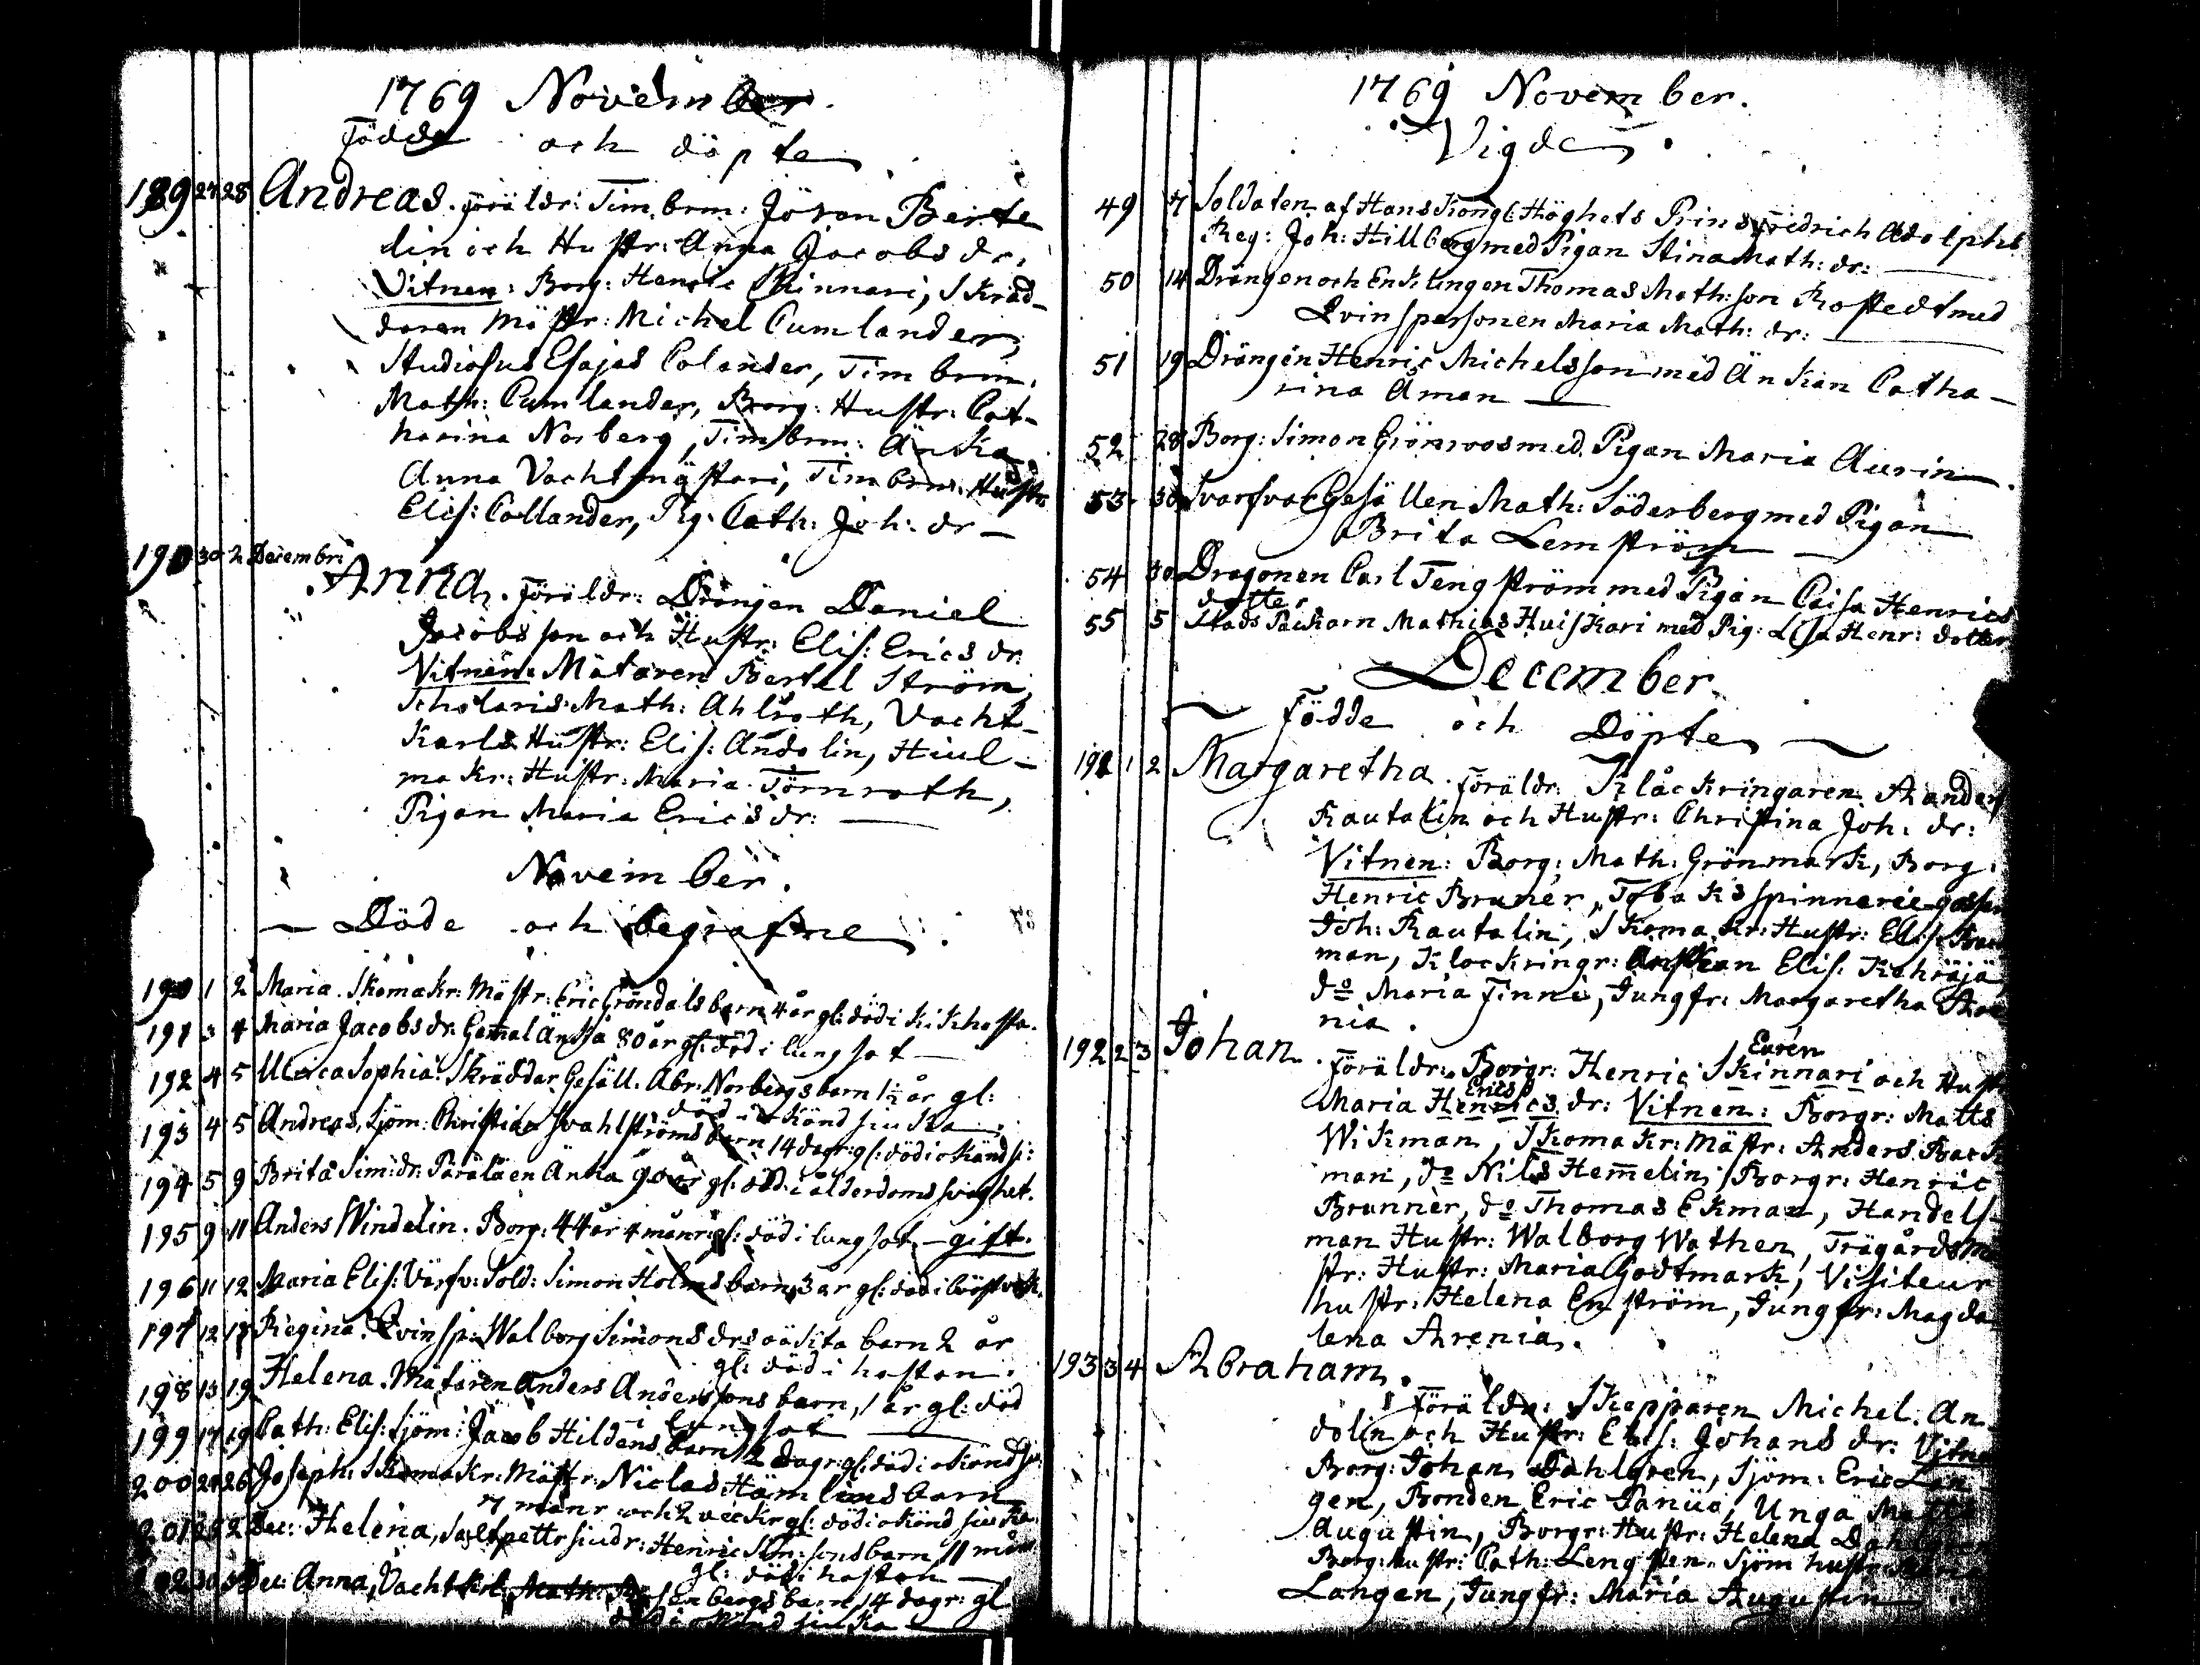 1769 November.
Födde och döpte
189 27 28 Andreas. Föräldr: Timbrm: Jöran Berte
lin och Hustr: Anna Jacobs dr,
Vitnen: Borg: Henric Skinnari, Skräd-
daren Mästr: Michel Cumlander,
Studiosus Esajas Colander, Timbrm.
Math: Cumlander, Borg: Hustr: Cat-
harina Norberg, Timbrm: Änka
Anna Vachtmästari, Timbrm: Hustr
Elis: Collander, Pig: Cath: Joh: dr —
190 30 2 Decembri
Anna. Föräldr: Drängen Daniel
Jacobs son och Hustr: Elis: Erics dr:
Vitnen: Mätaren Bertel Ström,
Scholaris Math: Ahlroth, Vacht-
Karls Hustr: Elis: Andolin, Hiul-
makr: Hustr: Maria Törnroth,
Pigan Maria Erics dr: —
November.
— Döde och begrafne
190 1 2 Maria. Skomakr: Mästr: Eric Gröndals barn 4 år gl: död i Kikhosta.
191 3 4 Maria Jacobs dr: Gam̄al Änka 80 år gl: död i lungsot —
192 4 5 Ulrica Sophia. Skräddar Gesäll. Abr: Norbergs barn 1½ år gl:
död i okänd siuka
193 4 5 Andreas, Sjöm: Christian Svahlströms barn 14 dagr: gl: död i okänd si:
194 5 9 Brita Sim: dr: Pärälä en Änka 90 år gl: död i ålderdoms svaghet.
195 9 11 Anders Windelin. Borg: 44 år 4 månr: gl: död i lungsot — gift.
196 11 12 Maria Elis: Värfv: Sold: Simon Holms barn 3 år gl: död i bröstverk.
197 12 17 Regina. Qvinsp: Walborg Simons drs oäkta barn 2 år
gl: död i hostan.
198 13 19 Helena. Mätaren Anders Anderssons barn, 1 år gl: död
i lungsot
199 17 19 Cath: Elis: Sjöm: Jacob Hildens barn 2 dagr: gl: död i okänd si:
200 24 26 Joseph: Skomakr: Mästr: Niclas Hämlins barn
7 månr och 2 veckr gl: död i okänd siuka.
201 28 2 Dec: Helena, Saltpettrsiudr: Henric Sim: sons barn 11 mån
gl: död i hostan —
202 30 Dec: Anna, Vachtkrl: Math: senbergs barn 14 dagr: gl
död i okänd siuka
1769 November.
Vigde.
49 7 Soldaten af Hans Kongl: Höghets Prins Fredrich Adolphs
Reg: Joh: Hillberg med Pigan Stina Math: dr: —
50 14 Drängen och Enklingen Thomas Math: son Rostedt med
Qvinspersonen Maria Math: dr: —
51 19 Drängen Henric Michelsson med Änkan Catha-
rina Åman —
52 28 Borg: Simon Grönroos med Pigan Maria Aurin.
53 30 Svarfvar Gesällen Math: Söderberg med Pigan
Brita Lemström —
54 30 Dragonen Carl Tengström med Pigan Caisa Henrics
dotter
55 5 Stads Packarn Mathias Huiskari med Pig: Lisa Henr: dotter
December.
Födde och Döpte
191 1 2 Margaretha. Föräldr: Klåckringaren Anders
Rautalin och Hustr: Christina Joh: dr:
Vitnen: Borg: Math: Grönmark, Borg:
Henric Bruner, Tobaks spinneri gossen
Joh: Rautalin, Skomakr: Hustr: Elis: Back
man, Klockringr: Elis: Kahräjä
do Maria Finne, Jungfr: Margaretha Are
nia.
192 2 3 Johan. Föräldr: Borgr: Henric Skinnari och Hustr
Eurén
Maria Henrics dr: Vitnen: Borgr: Matts
Erics
Wikman, Skomakr: Mästr: Anders Back
man, do Nils Hem̄elin, Borgr: Henric
Brunnér, do Thomas Ekman, Handels-
man Hustr: Walborg Wathen, Trägårdsmä
str: Hustr: Maria Godtmark, Visiteur
hustr: Helena Enström, Jungfr: Magda
lena Arenia.
193 3 4 Abraham.
Föräldr: Skepparen Michel An
dolin och Hustr: Elis: Johans dr: Vitne
Borg: Johan Dahlgren, Sjöm: Eric Lan
gen, Bonden Eric Panua, Unga Matts
Augustin, Borgr: Hustr: Helena Dahlgren
Borg: hustr: Cath: Lengsten. Sjöm hustr: Maria
Langen, Jungfr: Maria Augustin